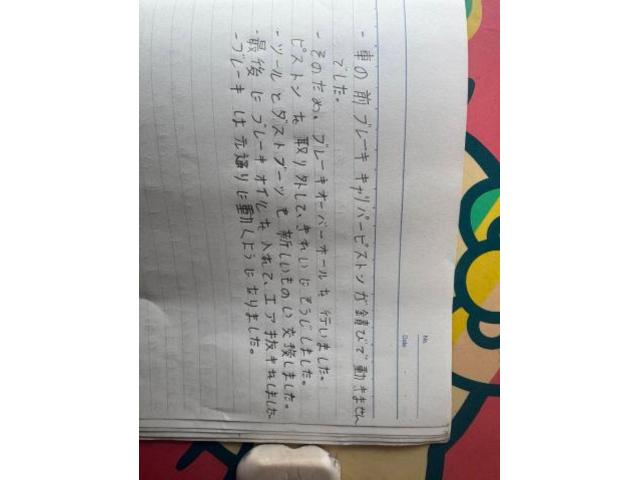 No.
Date
- 車の前ブレーキキャリパーピストンが錆びで動きません
でした。
- そのため、ブレーキオーバーオールを行いました。
ピストンを取り外して、きれいにそうじしました。
- ツールとダストブーツを新しいものい交換しました。
- 最後にブレーキオイルを入れて、エア抜きをしました
- ブレーキは元通りに動くようになりました。